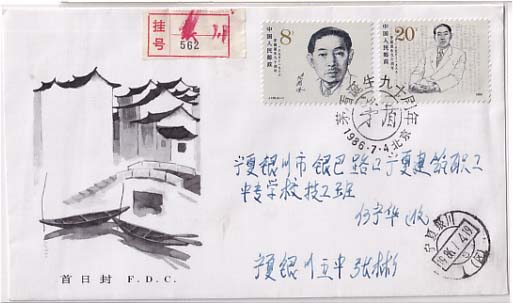 挂号
562
8分
中国人民邮政
20分
中国人民邮政
茅盾诞生九十周年
茅盾
1986·7·4·北京
宁夏银川市银巴路口宁夏建筑职工
中专学校技工班
何宇华 收
宁夏银川五中 张彬
宁夏银川
首日封 F.D.C.